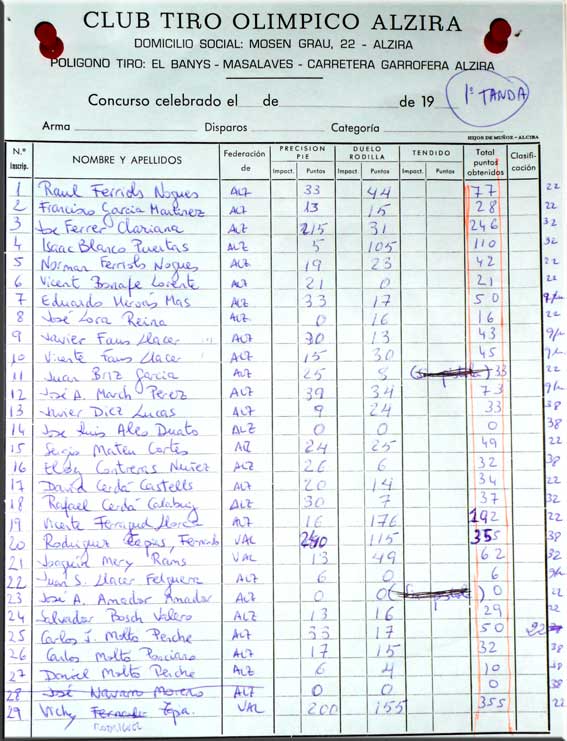 CLUB TIRO OLIMPICO ALZIRA
DOMICILIO SOCIAL: MOSEN GRAU, 22 - ALZIRA
POLIGONO TIRO: EL BANYS - MASALAVES - CARRETERA GARROFERA ALZIRA
Concurso celebrado el de de 19 1ª TANDA
Arma Disparos Categoría
HIJOS DE MUÑOZ - ALCIRA
N.º Inscrip. NOMBRE Y APELLIDOS Federación de PRECISION PIE DUELO RODILLA TENDIDO Total puntos obtenidos Clasificación
Impact. Puntos Impact. Puntos Impact. Puntos
1 Raul Ferriols Nogues ALZ 33 44 77 22
2 Francisco Garcia Martinez ALZ 13 15 28 22
3 Jose Ferrer Clariana ALZ 215 31 246 32
4 Isaac Blanco Puertas ALZ 5 105 110 32
5 Norman Ferriols Nogues ALZ 19 23 42 22
6 Vicent Bonafe Lorente ALZ 21 0 21 22
7 Eduardo Hervás Mas ALZ 33 17 50
8 José Lora Reina ALZ 0 16 16 22
9 Javier Faus Llacer ALZ 30 13 43
10 Vicente Faus Llacer ALZ 15 30 45
11 Juan Briz Garcia ALZ 25 8 33 22
12 José A. March Perez ALZ 39 34 73
13 Javier Diez Lucas ALZ 9 24 33 38
14 Jose Luis Ales Duato ALZ 0 0 0 38
15 Sergio Mateu Cortés ALZ 24 25 49 22
16 Eloy Contreras Nuñez ALZ 26 6 32 38
17 David Cerdá Castells ALZ 20 14 34 22
18 Rafael Cerdá Calabuig ALZ 30 7 37 32
19 Vicente Ferragud Llorca ALZ 16 176 192 22
20 Rodriguez Fernando VAL 240 115 355 38
21 Joaquin Mery Rams VAL 13 49 62 32
22 Juan S. Llacer Felguera ALZ 6 0 6
23 José A. Amador Amador ALZ 0 0 0 22
24 Salvador Bosch Valero ALZ 13 16 29 22
25 Carlos J. Molto Perche ALZ 33 17 50 22
26 Carlos Molto Ponciano ALZ 17 15 32 38
27 Daniel Molto Perche ALZ 6 4 10 38
28 José Navarro Moreno ALZ 0 0 0 38
29 Vichy VAL 200 155 355 22
RODRIGUEZ